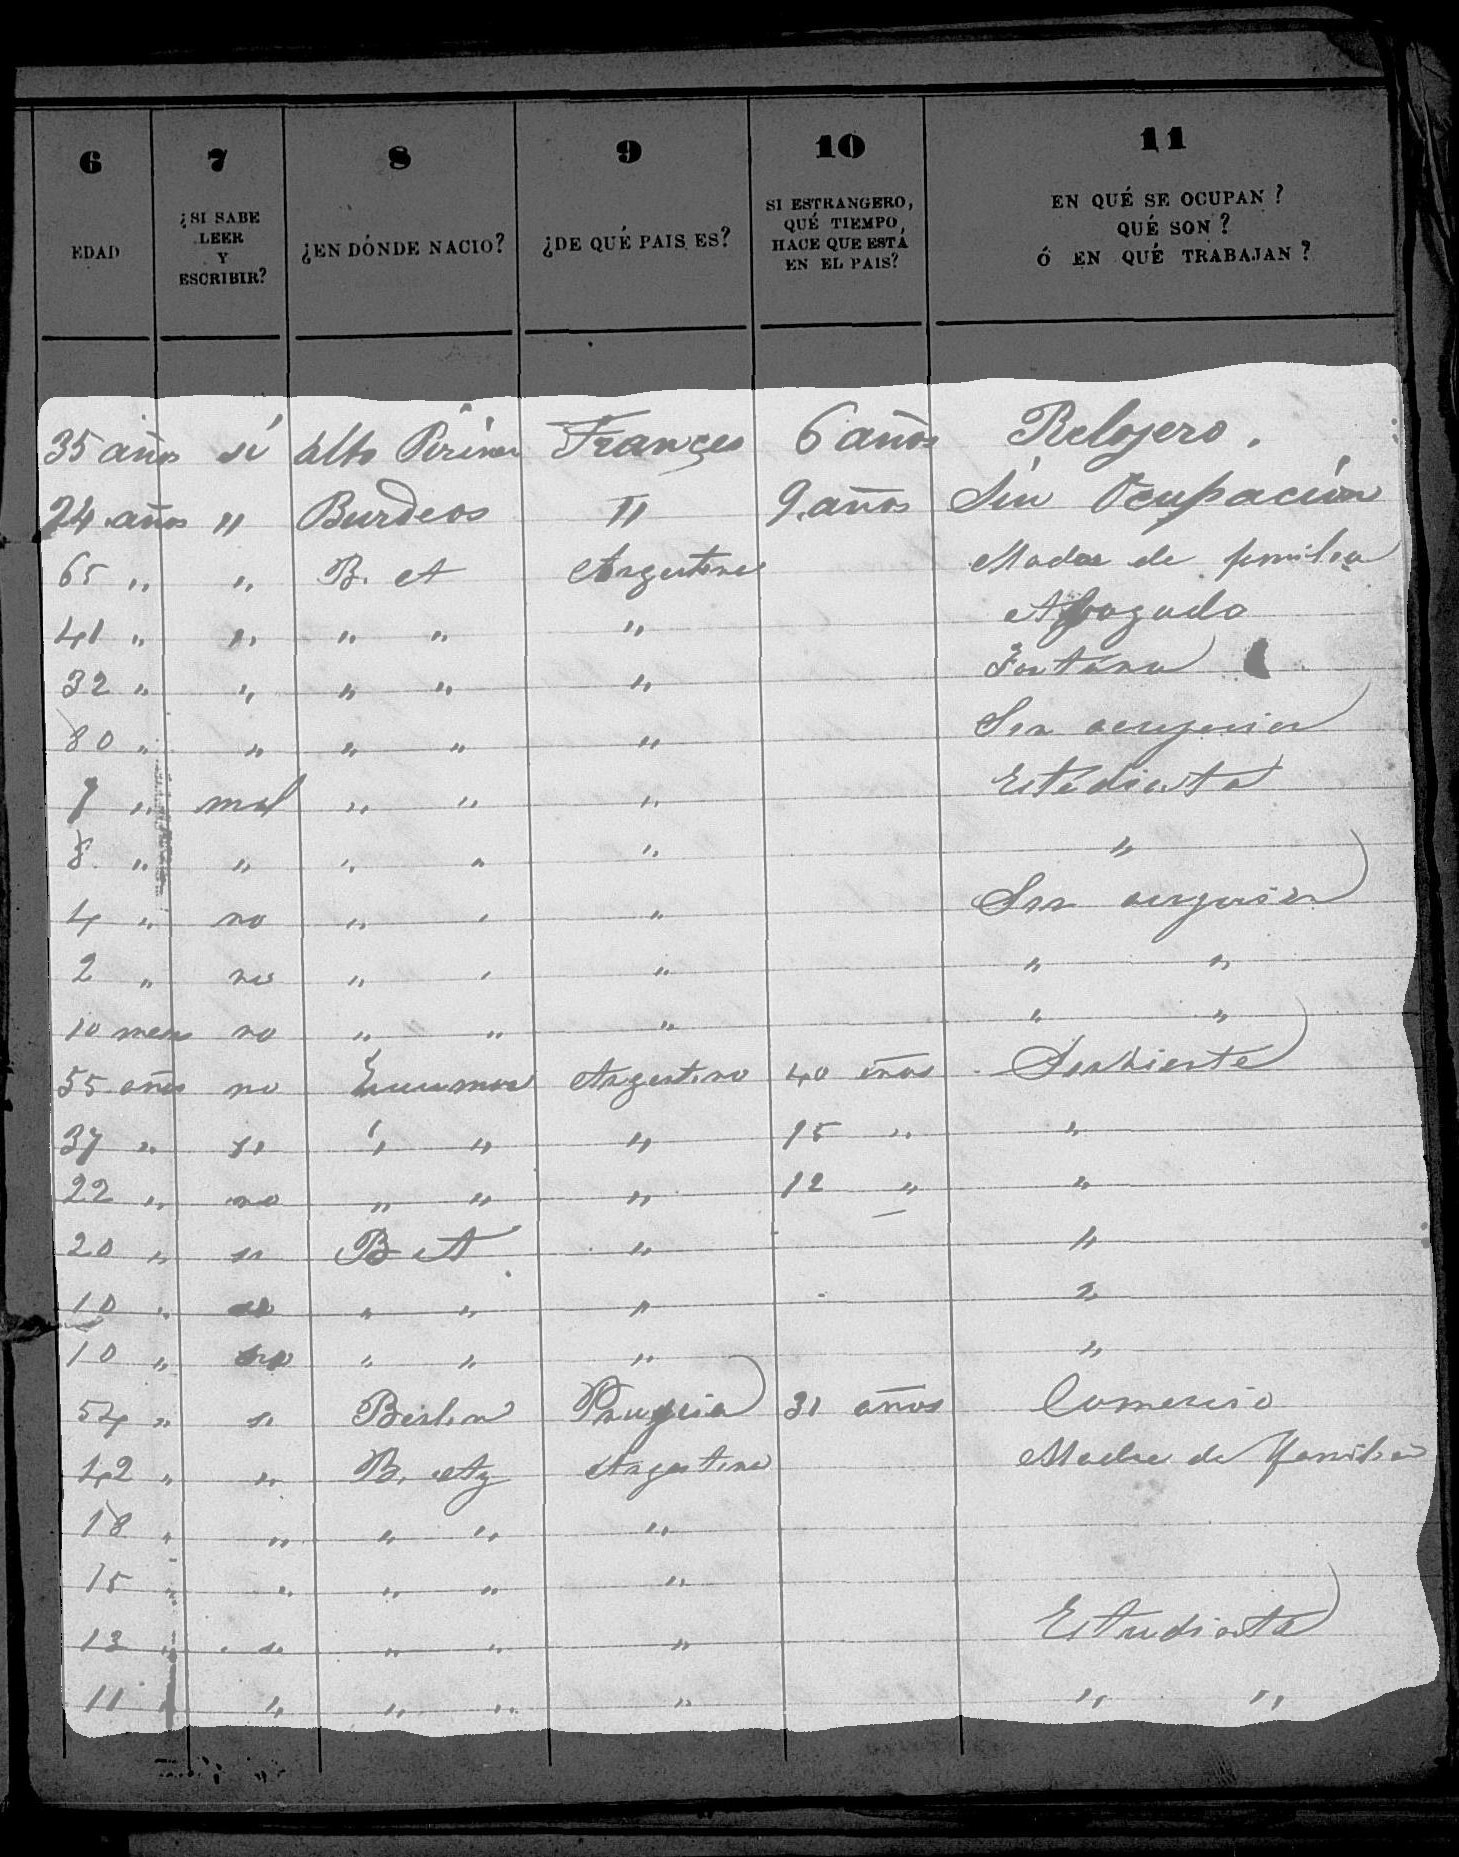 6 7 8 9 10 11
EDAD ¿SI SABE LEER Y ESCRIBIR? ¿EN DÓNDE NACIO? ¿DE QUÉ PAIS ES? SI ESTRANGERO, QUÉ TIEMPO HACE QUE ESTÁ EN EL PAIS? EN QUÉ SE OCUPAN? QUÉ SON? Ó EN QUÉ TRABAJAN?
35 años sí Alto Frances 6 años Relojero.
24 años " Burdeos " 9 años Sin Ocupación
65 " " B. A Argentina Madre de familia
41 " " " " " Abogado
32 " " " " "
80 " " " " " Sin
7 " mal " " " Estudiante
8 " " " " " "
4 " no " " " Sin
2 " no " " " " "
10 meses no " " " " "
55 años no Argentino 40 años Sirviente
37 " si " " " 15 " "
22 " no " " " 12 " "
20 " si B A " "
10 " " " " "
10 " no " " " "
54 " si Berlin Prusia 31 años Comercio
42 " " B. Argentina Madre de familia
18 " " " " "
15 " " " " "
13 " si " " " Estudiante
11 " " " " " " "